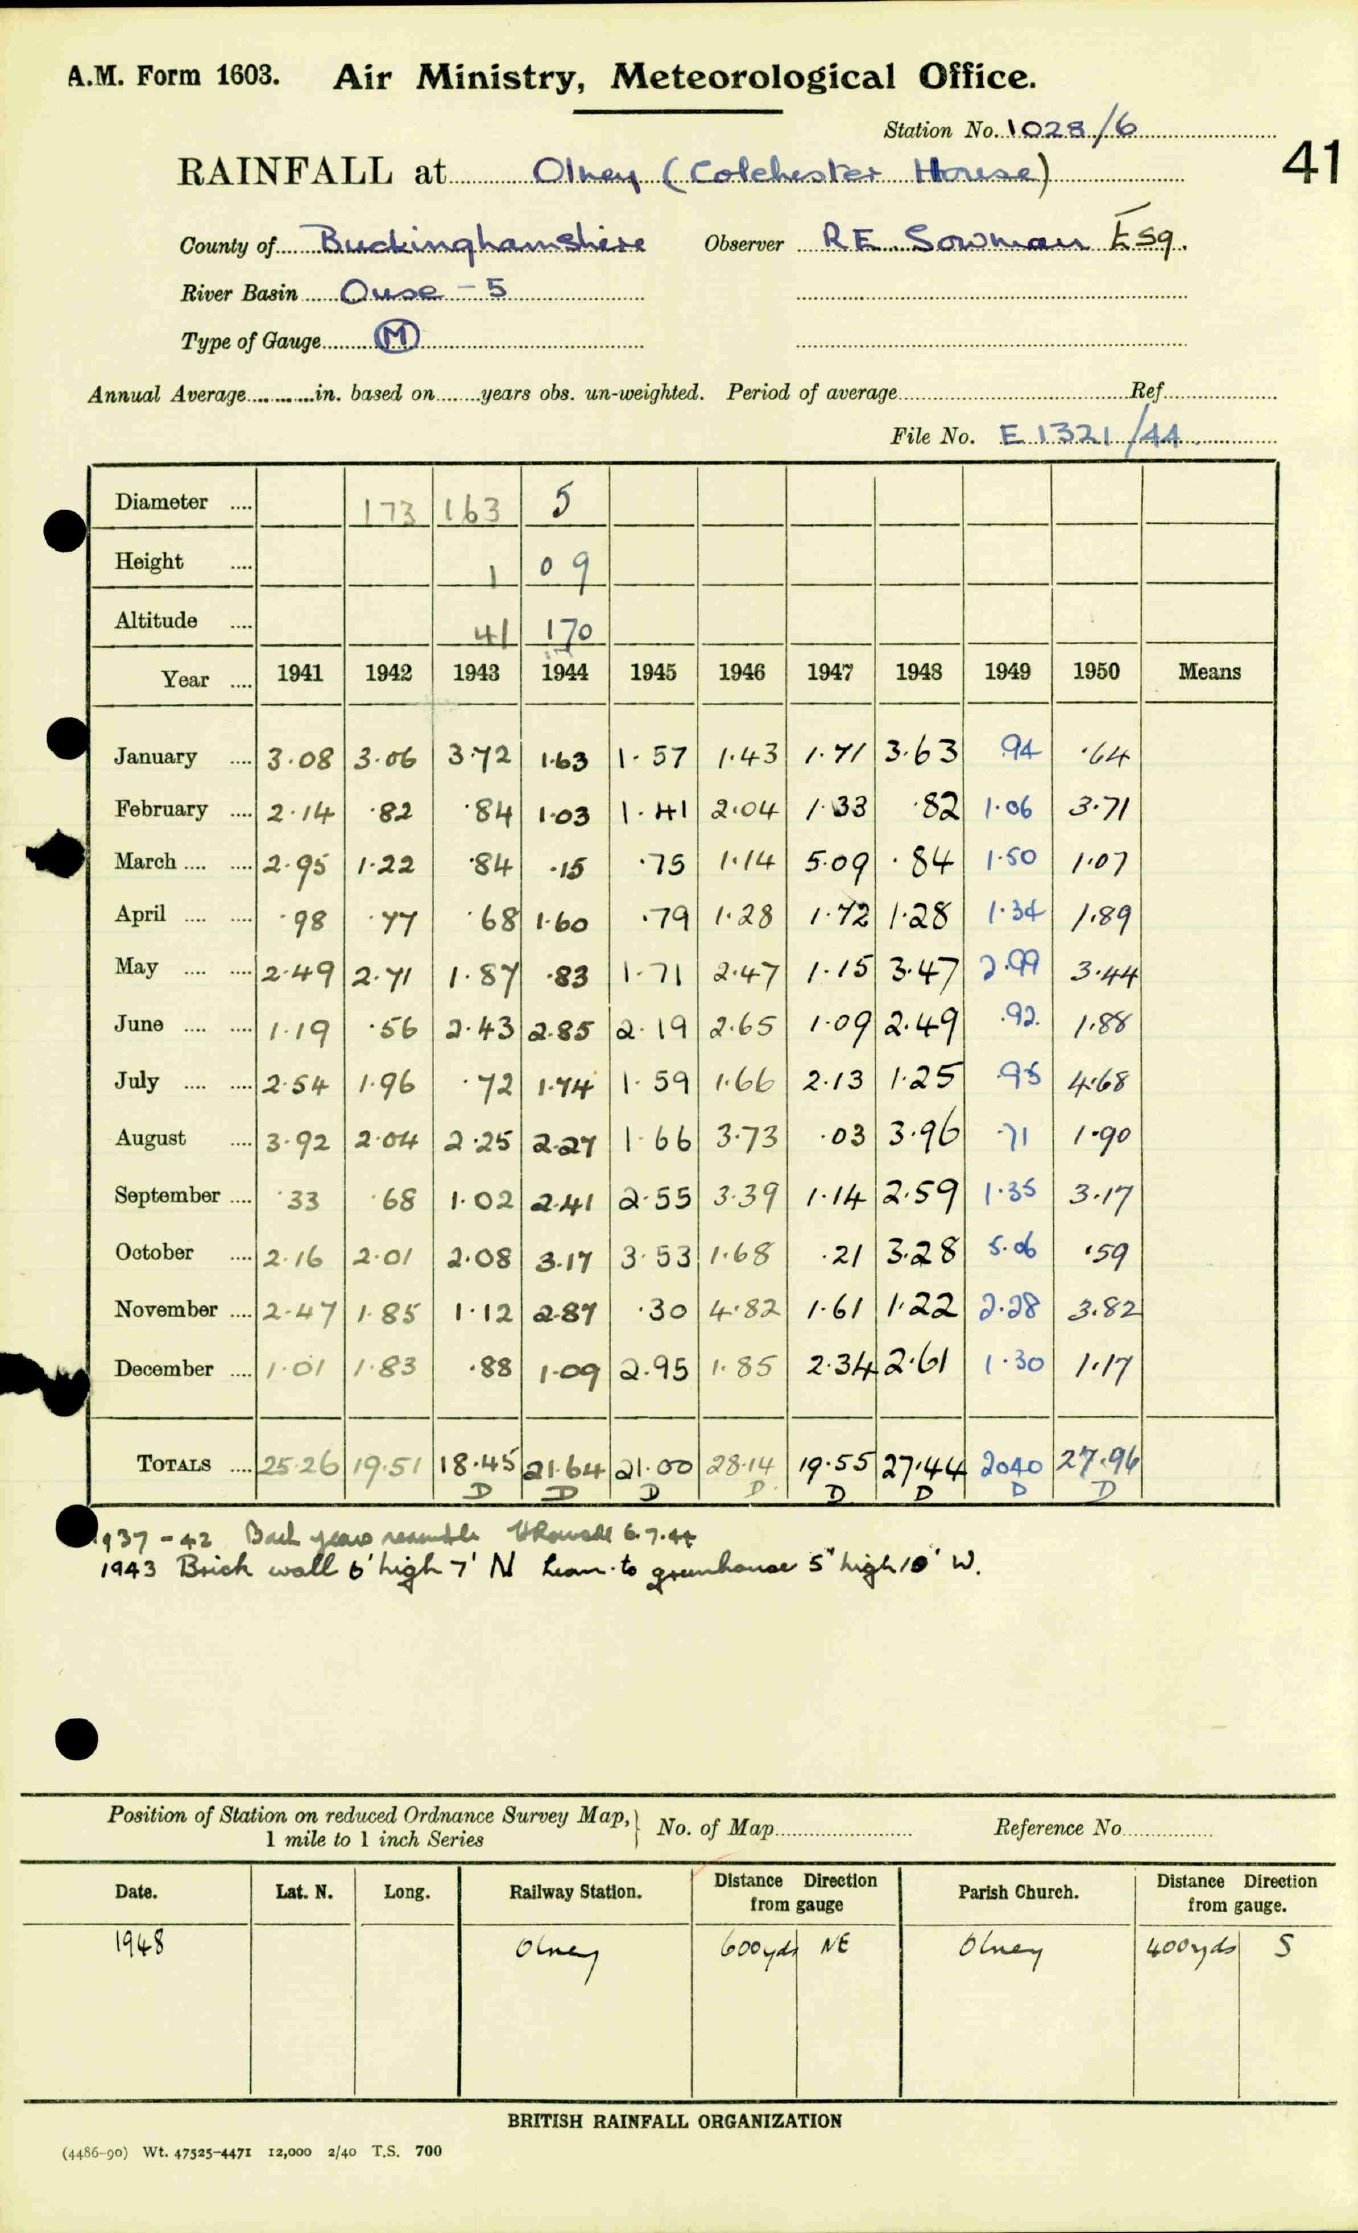 A.M. Form 1603. Air Ministry, Meteorological Office.
Station No. 1028/6
41
RAINFALL at Olney (Colchester House)
County of Buckinghamshire Observer R E Sowman Esq.
River Basin Ouse - 5
Type of Gauge M
Annual Average in. based on years obs. un-weighted. Period of average Ref
File No. E 1321/44
Diameter 173 163 5
Height 1 0 9
Altitude 41 170
Year 1941 1942 1943 1944 1945 1946 1947 1948 1949 1950 Means
January 3.08 3.06 3.72 1.63 1.57 1.43 1.71 3.63 .94 .64
February 2.14 .82 .84 1.03 1.41 2.04 1.33 .82 1.06 3.71
March 2.95 1.22 .84 .15 .75 1.14 5.09 .84 1.50 1.07
April .98 .77 .68 1.60 .79 1.28 1.72 1.28 1.34 1.89
May 2.49 2.71 1.87 .83 1.71 2.47 1.15 3.47 2.99 3.44
June 1.19 .56 2.43 2.85 2.19 2.65 1.09 2.49 .92 1.88
July 2.54 1.96 .72 1.74 1.59 1.66 2.13 1.25 .95 4.68
August 3.92 2.04 2.25 2.27 1.66 3.73 .03 3.96 .71 1.90
September .33 .68 1.02 2.41 2.55 3.39 1.14 2.59 1.35 3.17
October 2.16 2.01 2.08 3.17 3.53 1.68 .21 3.28 5.06 .59
November 2.47 1.85 1.12 2.87 .30 4.82 1.61 1.22 2.28 3.82
December 1.01 1.83 .88 1.09 2.95 1.85 2.34 2.61 1.30 1.17
TOTALS 25.26 19.51 18.45 21.64 21.00 28.14 19.55 27.44 20.40 27.96
D D D D D D D D
1937 - 42 Back years 6.7.44
1943 Brick wall 6' high 7' N Lean-to greenhouse 5" high 10' W.
Position of Station on reduced Ordnance Survey Map, 1 mile to 1 inch Series No. of Map Reference No
Date. Lat. N. Long. Railway Station. Distance Direction from gauge Parish Church. Distance Direction from gauge.
1948 Olney 600yds NE Olney 400yds S
BRITISH RAINFALL ORGANIZATION
(4486-90) Wt. 47525-4471 12,000 2/40 T.S. 700